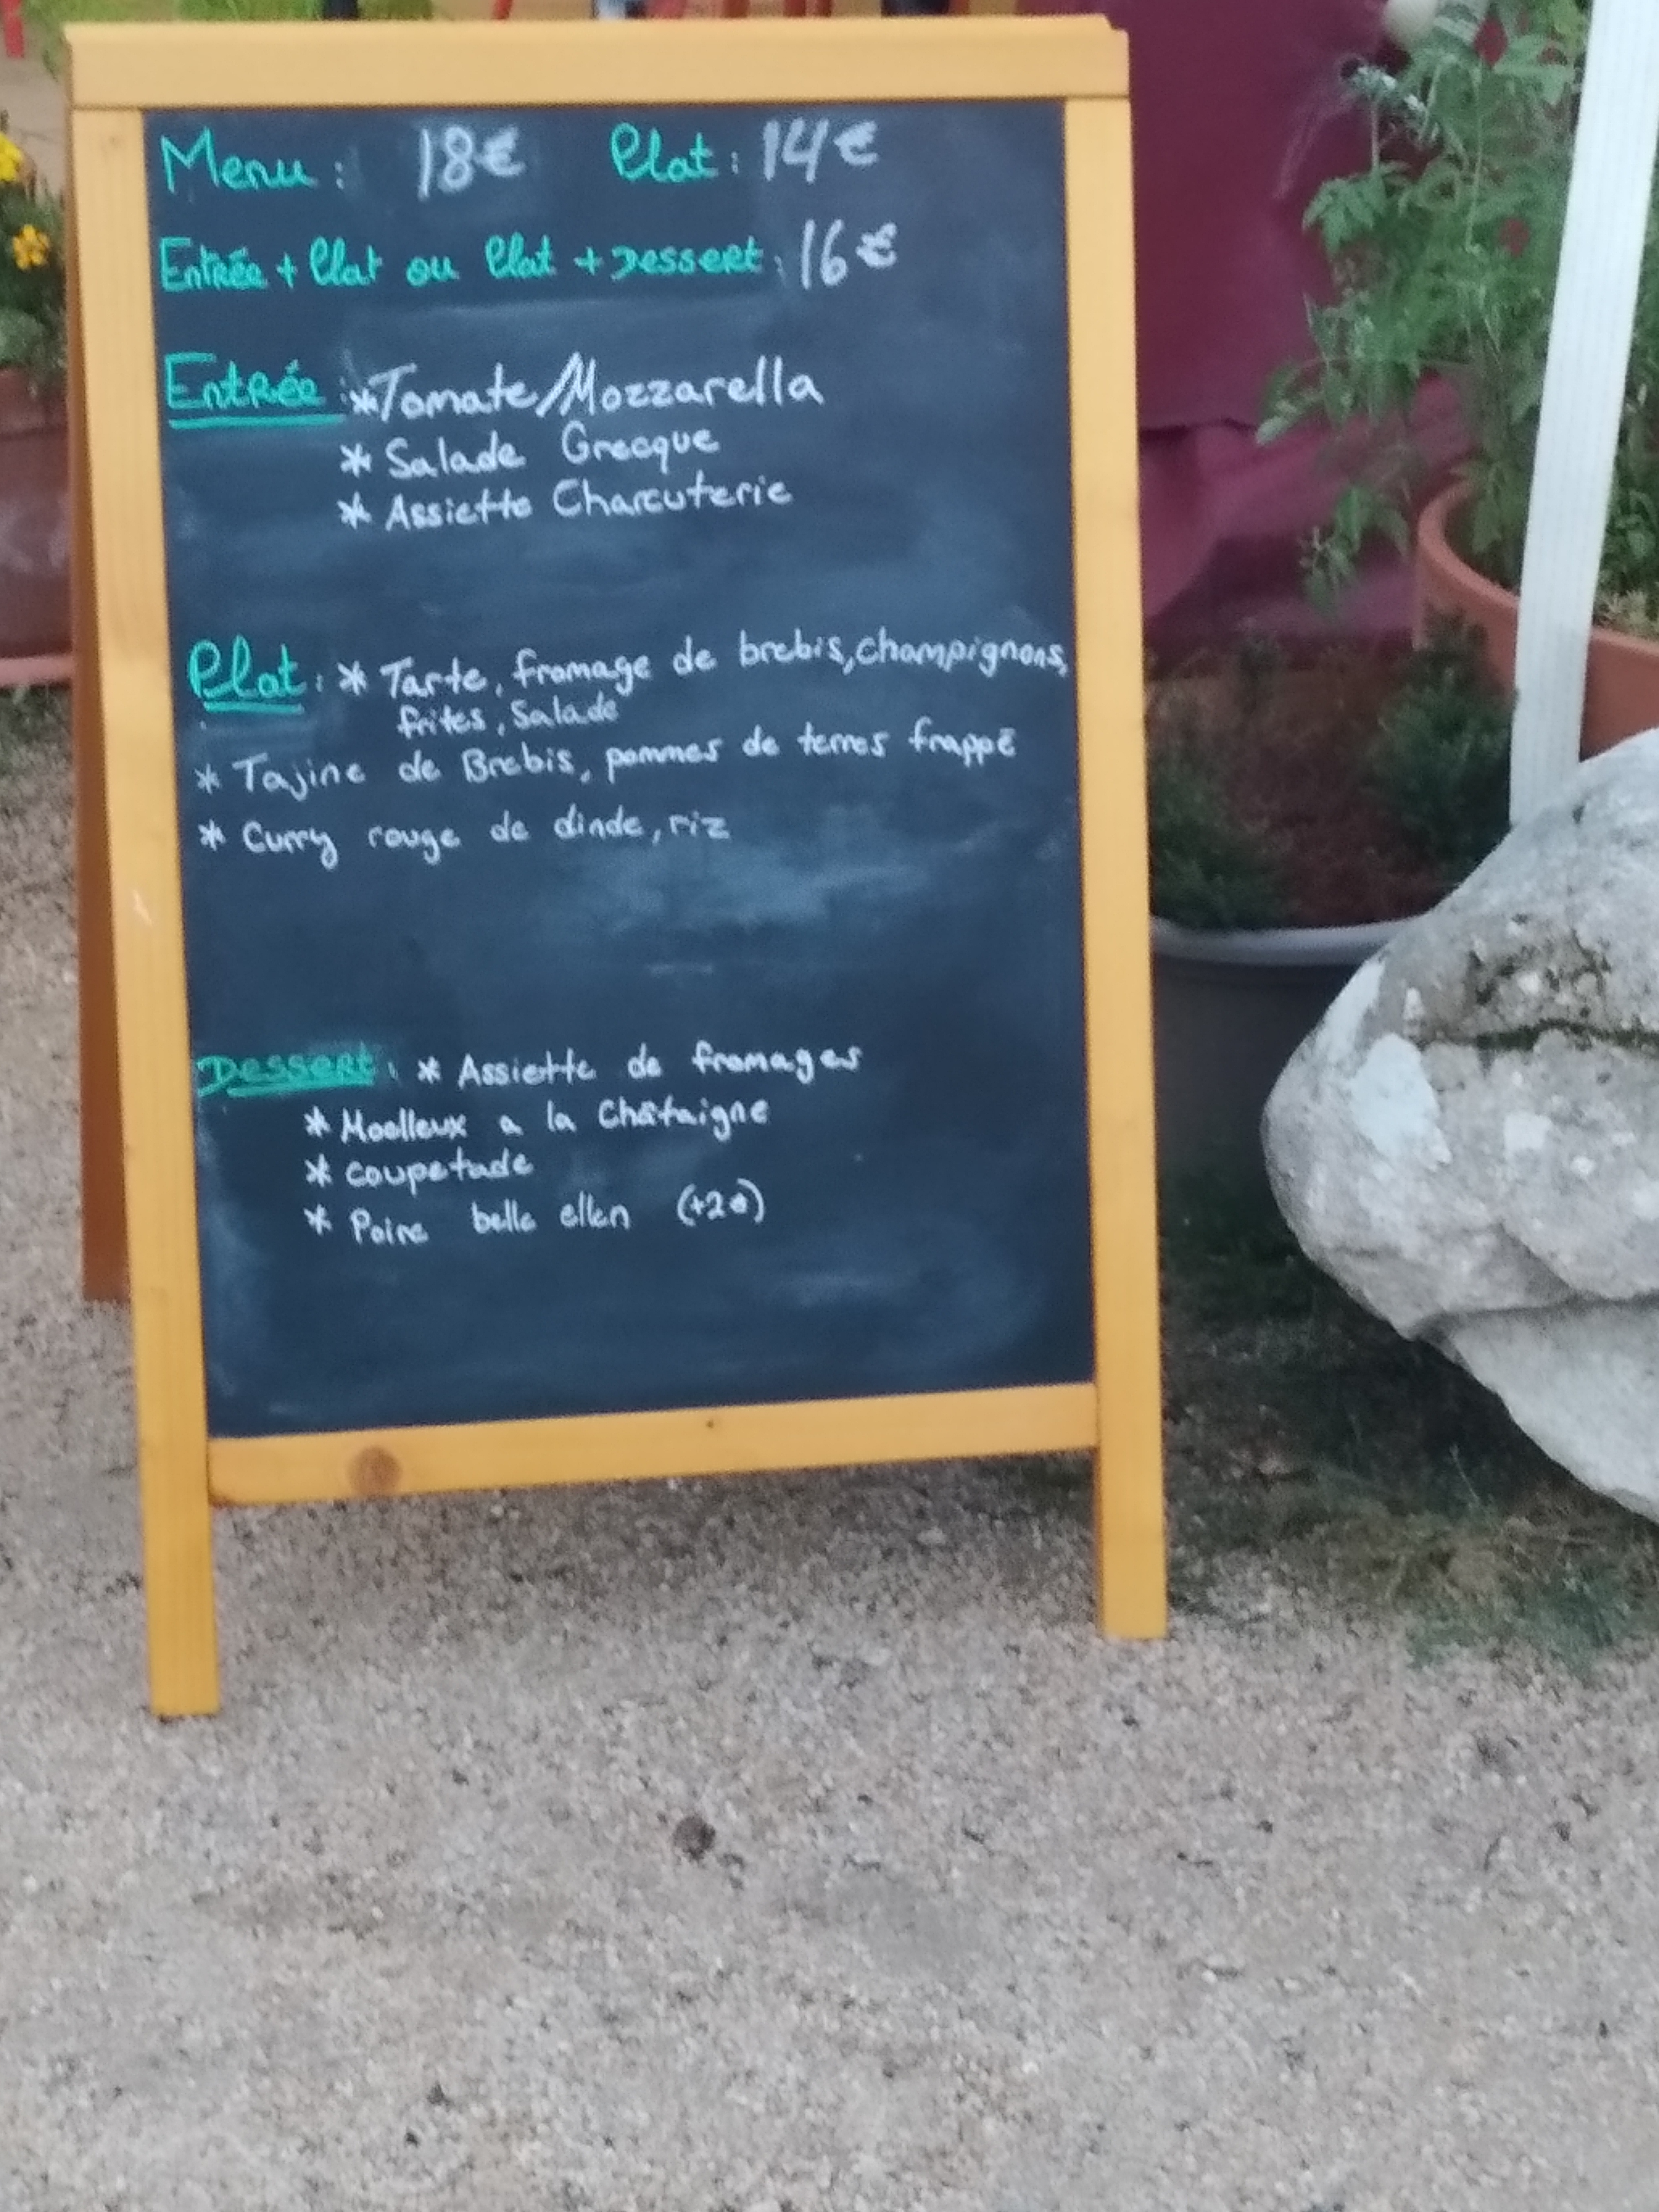 Menu : 18€ Plat : 14€
Entrée + Plat ou Plat + Dessert : 16€
Entrée : * Tomate/Mozzarella
* Salade Grecque
* Assiette Charcuterie
Plat : * Tarte, fromage de brebis, champignons,
frites, Salade
* Tajine de Brebis, pommes de terres frappé
* Curry rouge de dinde, riz
Dessert : * Assiette de fromages
* Moelleux a la Châtaigne
* coupetade
* Poire belle ellen (+2€)